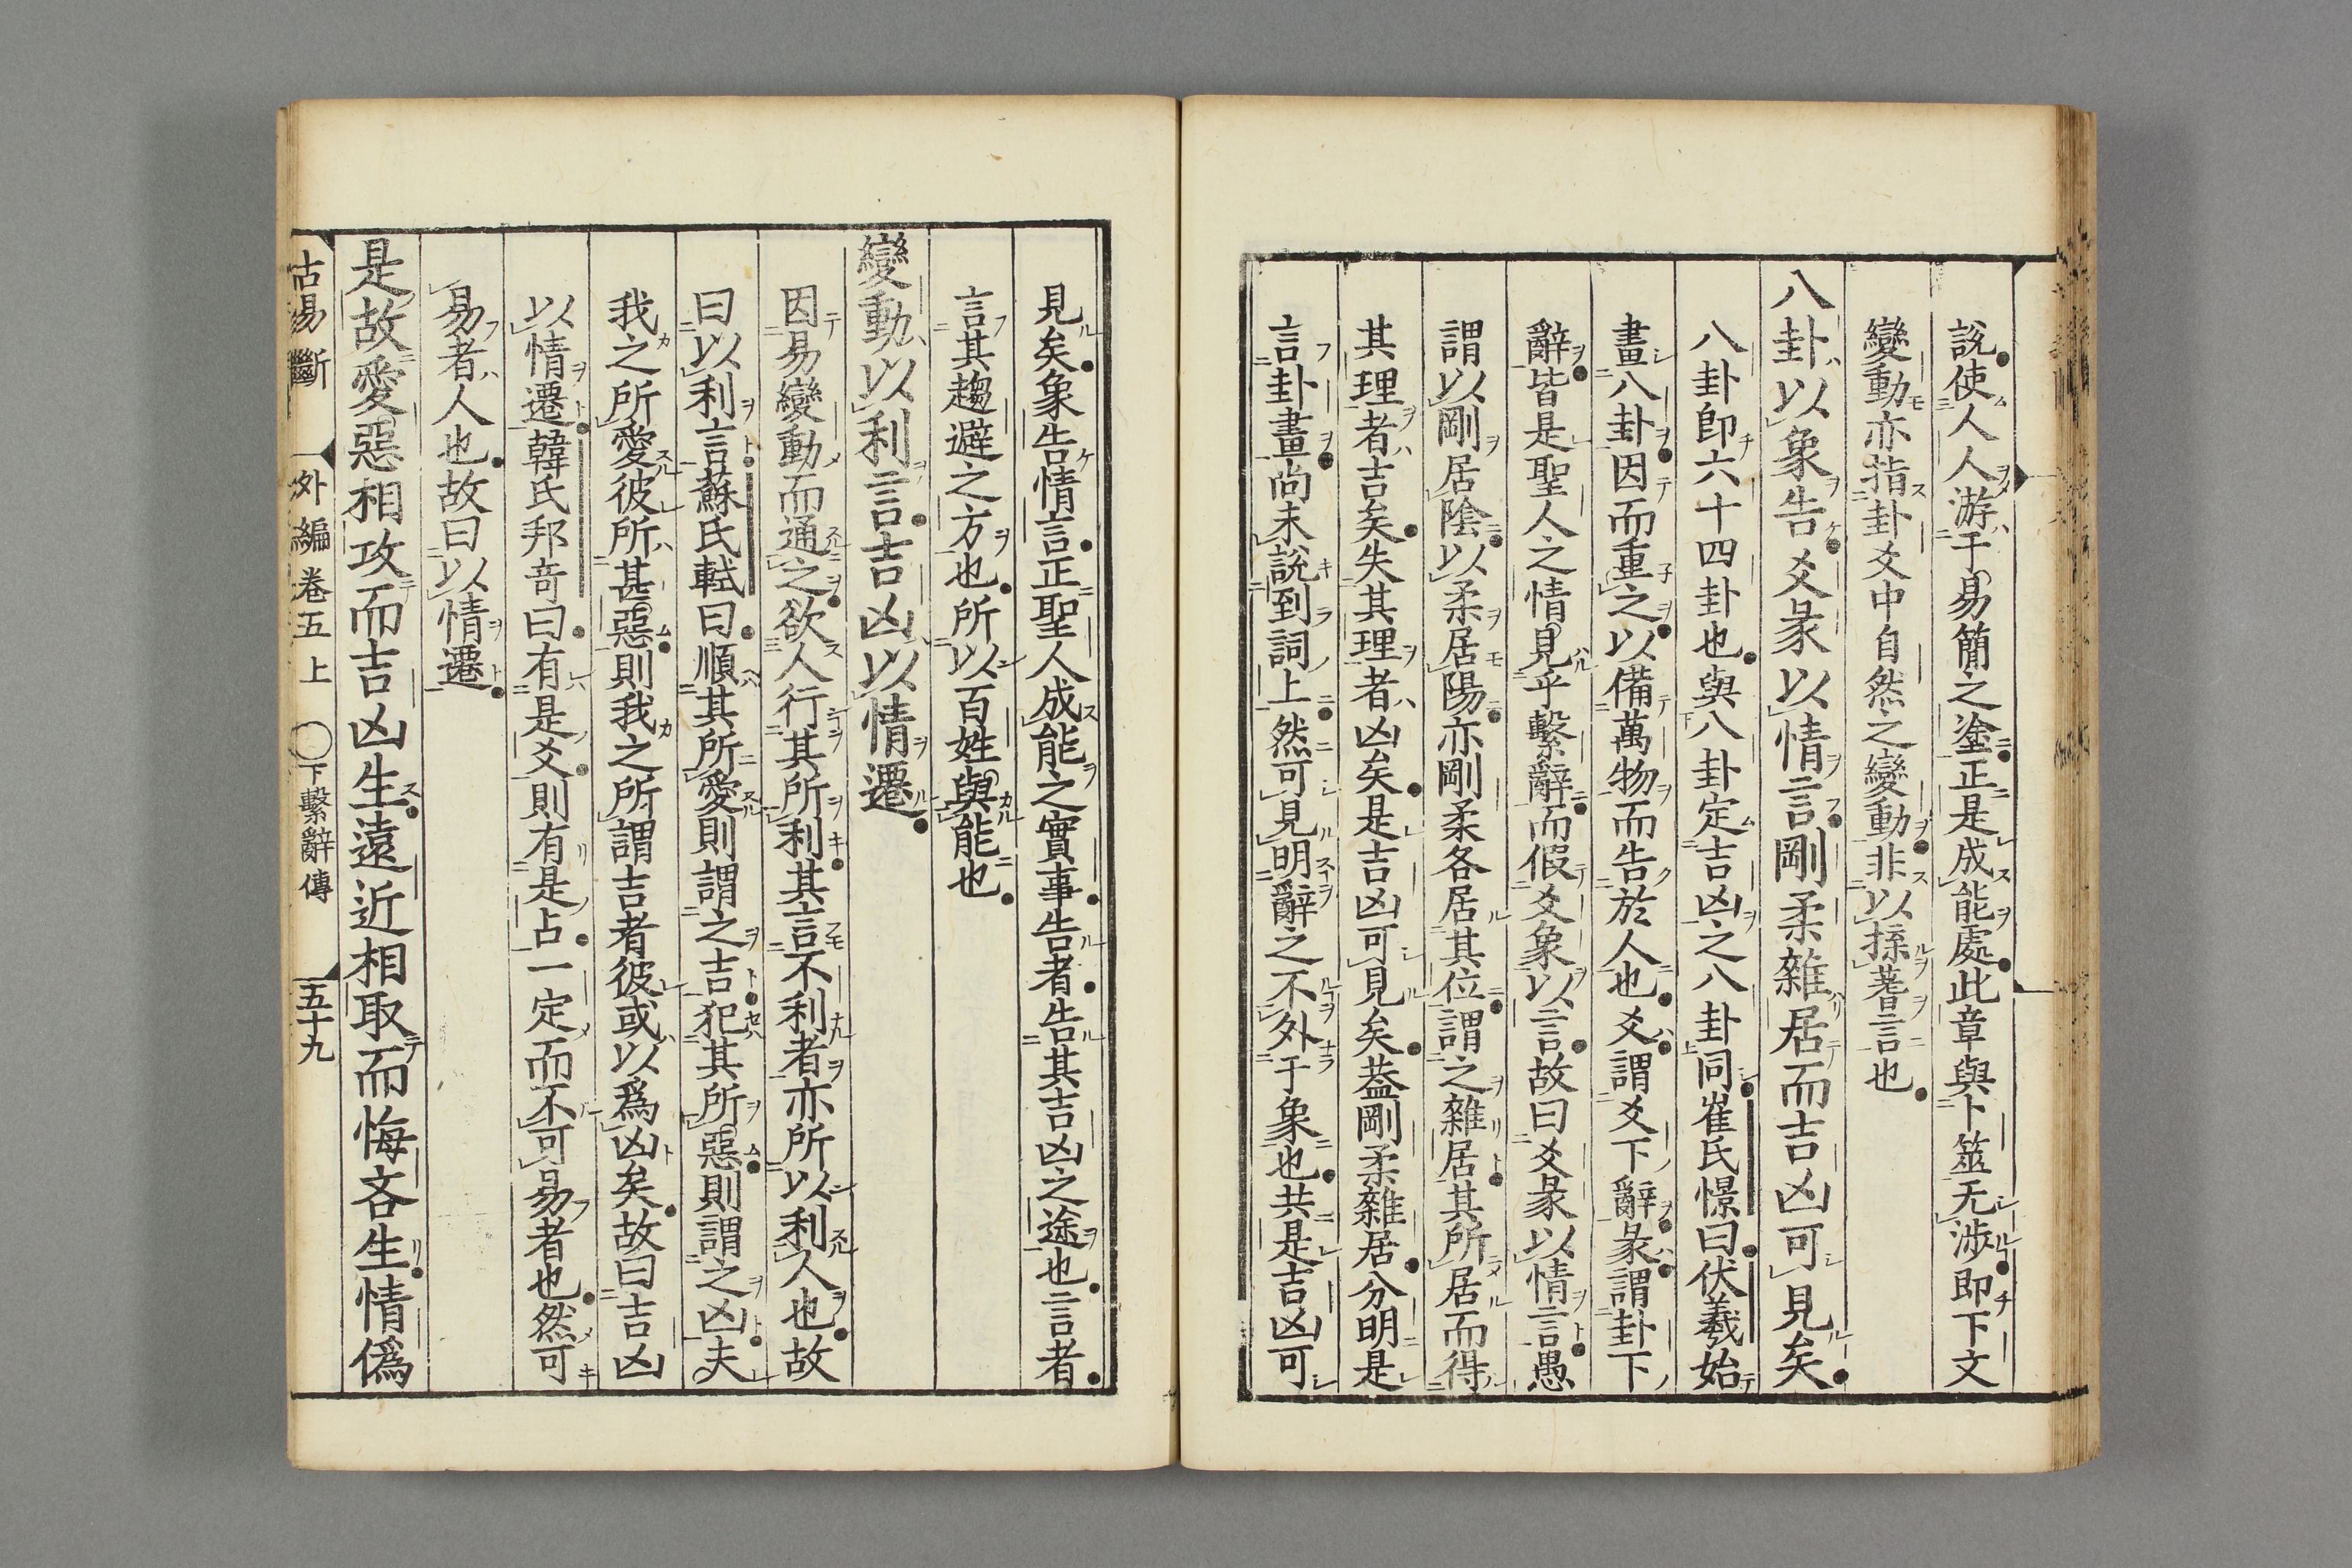 說使人人游于易簡之塗正是成能處此章與卜筮无涉即下文
變動亦指卦爻中自然之變動非以揲蓍言也
八卦以象告爻彖以情言剛柔雜居而吉凶可見矣
八卦即六十四卦也與八卦定吉凶之八卦同崔氏憬曰伏羲始
畫八卦因而重之以備萬物而告於人也爻謂爻下辭彖謂卦下
辭皆是聖人之情見乎繫辭而假爻象以言故曰爻彖以情言愚
謂以剛居陰以柔居陽亦剛柔各居其位謂之雜居其所居而得
其理者吉矣失其理者凶矣是吉凶可見矣葢剛柔雜居分明是
言卦畫尚未說到詞上然可見明辭之不外于象也共是吉凶可
見矣象告情言正聖人成能之實事告者告其吉凶之途也言者
言其趨避之方也所以百姓與能也
變動以利言吉凶以情遷
因易變動而通之欲人行其所利其言不利者亦所以利人也故
曰以利言蘇氏軾曰順其所愛則謂之吉犯其所惡則謂之凶夫
我之所愛彼所甚惡則我之所謂吉者彼或以爲凶矣故曰吉凶
以情遷韓氏邦竒曰有是爻則有是占一定而不可易者也然可
易者人也故曰以情遷
是故愛惡相攻而吉凶生遠近相取而悔吝生情僞
古易斷 外編卷五上 〇下繫辭傳 五十九